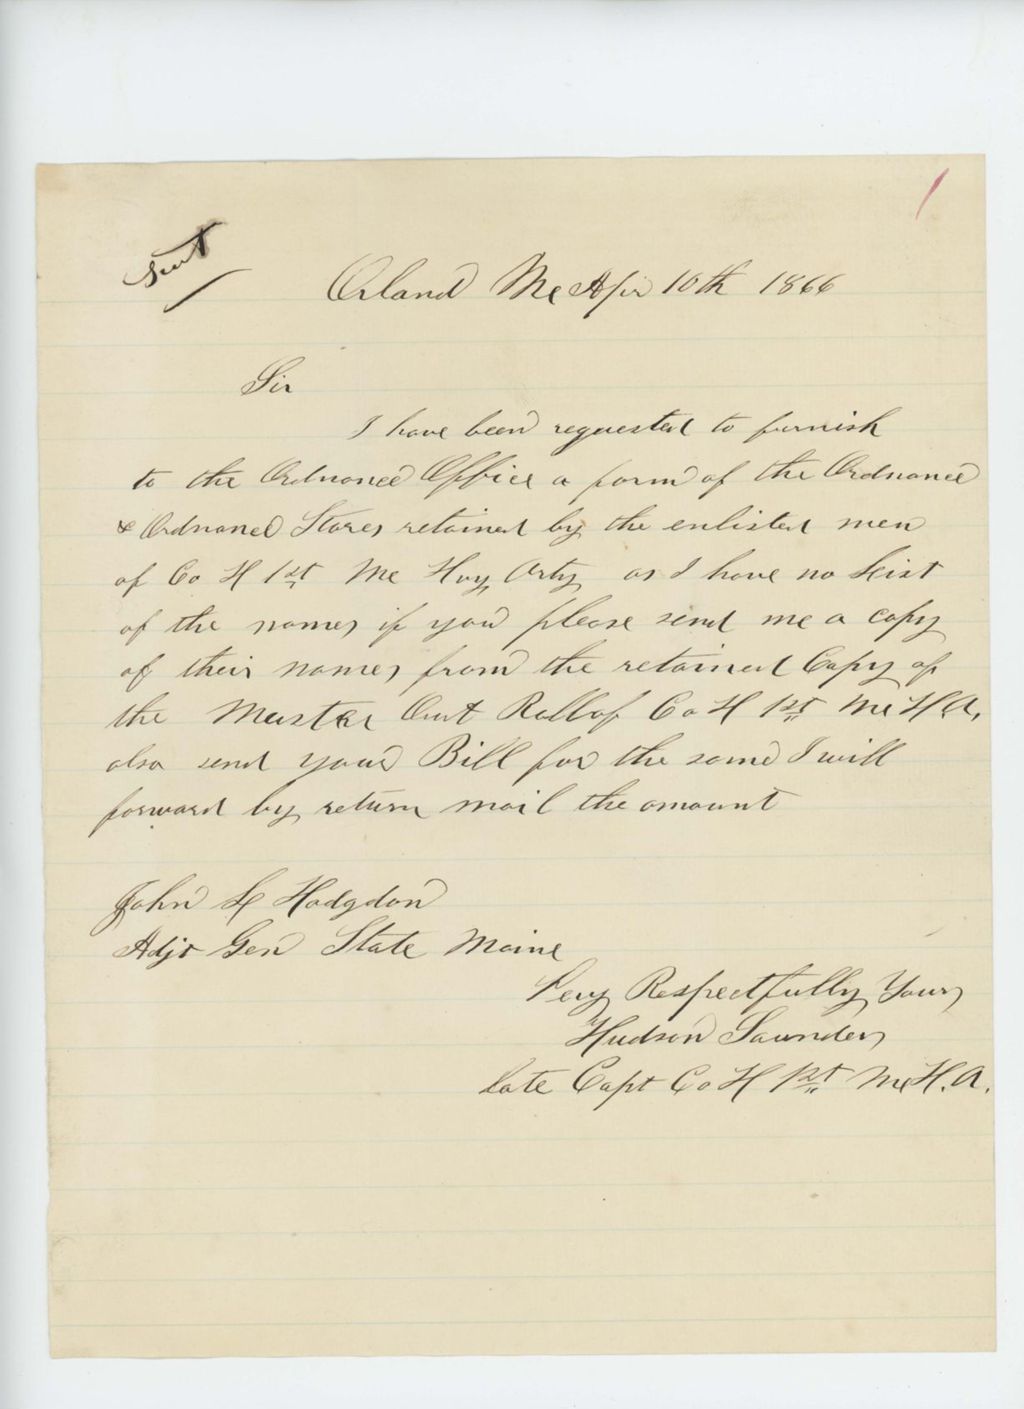 Sent
Orland Me Apr 10th 1866
Sir
I have been requested to furnish
to the Ordnance Office a form of the Ordnance
& Ordnance Stores retained by the enlisted men
of Co H 1st Me Hvy Arty as I have no Leist
of the names if you please send me a copy
of their names from the retained Copy of
the Muster Out Roll of Co H 1st Me H.A.
also send your Bill for the same I will
forward by return mail the amount
John L Hodgdon
Adjt Gen State Maine
Very Respectfully Yours
Hudson Saunders
late Capt Co H 1st Me H.A.